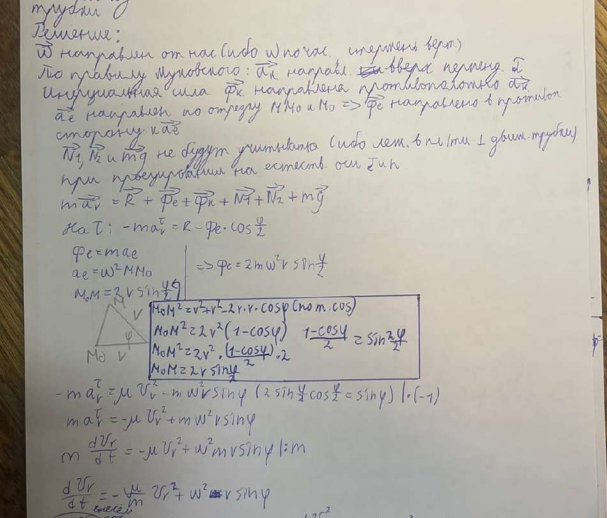 трубки
Решение:
ω⃗ направлен от нас (ибо ω по час, стержень верт)
По правилу Жуковского: a⃗к направл. вверх перпенд.
Инерциальная сила Ф⃗к направлена противоположно a⃗к
a⃗e направлен по отрезку MM₀ к M₀ => Ф⃗e направлено в противоп
сторону к a⃗e
N⃗1, N⃗2 и mg⃗ не будут учитыват (ибо леж. в пл/ти ⊥ движ. трубки)
при проецировании на естеств. оси τ и n
ma⃗r = R⃗ + Ф⃗e + Ф⃗к + N⃗1 + N⃗2 + mg⃗
На τ: -ma_r^τ = R - Фe · cos φ/2
Фe = mae
ae = ω² MM₀ => Фe = 2mω² r sin φ/2
M₀M = 2r sin φ/2
M r φ M₀ r
M₀M² = r² + r² - 2r·r·cosφ (по т. cos)
M₀M² = 2r² (1-cosφ) (1-cosφ)/2 = sin² φ/2
M₀M² = 2r² · (1-cosφ)/2 · 2
M₀M = 2r sin φ/2
-ma_r^τ = μ Vr² - mω² r sinφ (2 sin φ/2 cos φ/2 = sinφ) | · (-1)
ma_r^τ = -μ Vr² + mω² r sinφ
m dVr/dt = -μ Vr² + ω² m r sinφ | : m
dVr/dt = -μ/m Vr² + ω² r sinφ